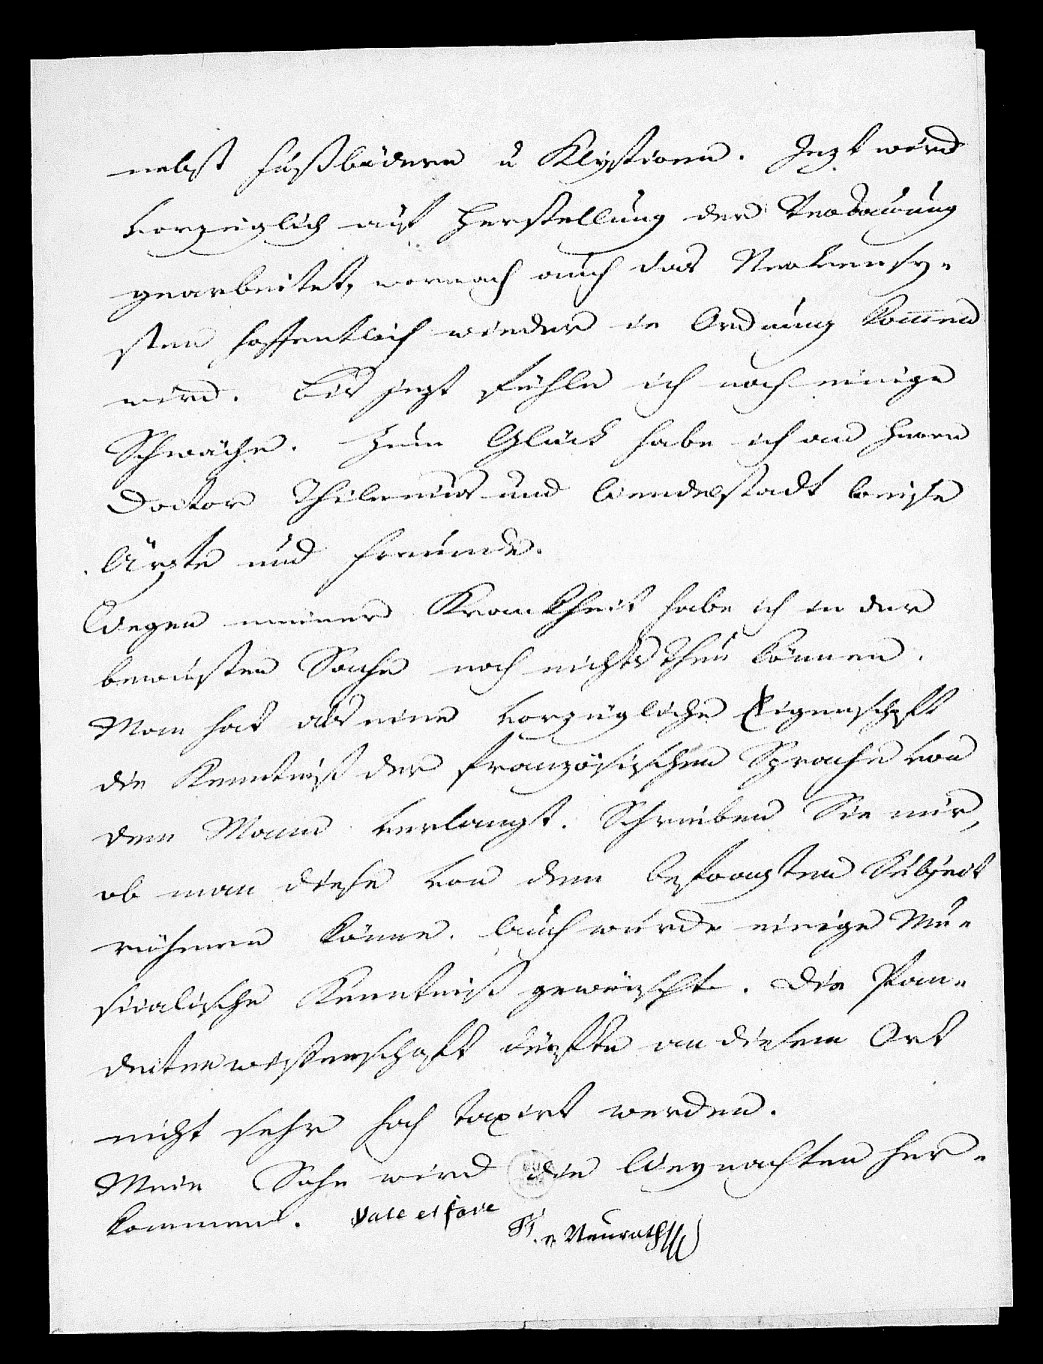 nebst Fußbädern u Klystiren. Jezt wird
vorzüglich auf Herstellung der Verdauung
gearbeitet, wornach auch das Nervensy-
stem hoffentlich wieder in Ordnung kommen
wird. Bis jezt fühle ich noch einige
Schwäche. Zum Glück habe ich an Herrn
Doctor Thilenius und Wendelstadt beyde
Ärzte und Freunde.
Wegen meiner Krankheit habe ich in der
bewusten Sache noch nichts thun können.
Man hat als eine vorzügliche Eigenschaft
die Kenntniß der französischen Sprache von
dem Mann verlangt. Schreiben Sie mir,
ob man diese von dem befragten Subject
rühmen könne. Auch würde einige Mu-
sicalische Kenntniß gewünscht. Die Pan-
dectenwissenschaft dürfte an diesem Ort
nicht sehr hoch taxirt werden.
Mein Sohn wird die Weynachten her-
kommen. Vale et fave
v. Neurath